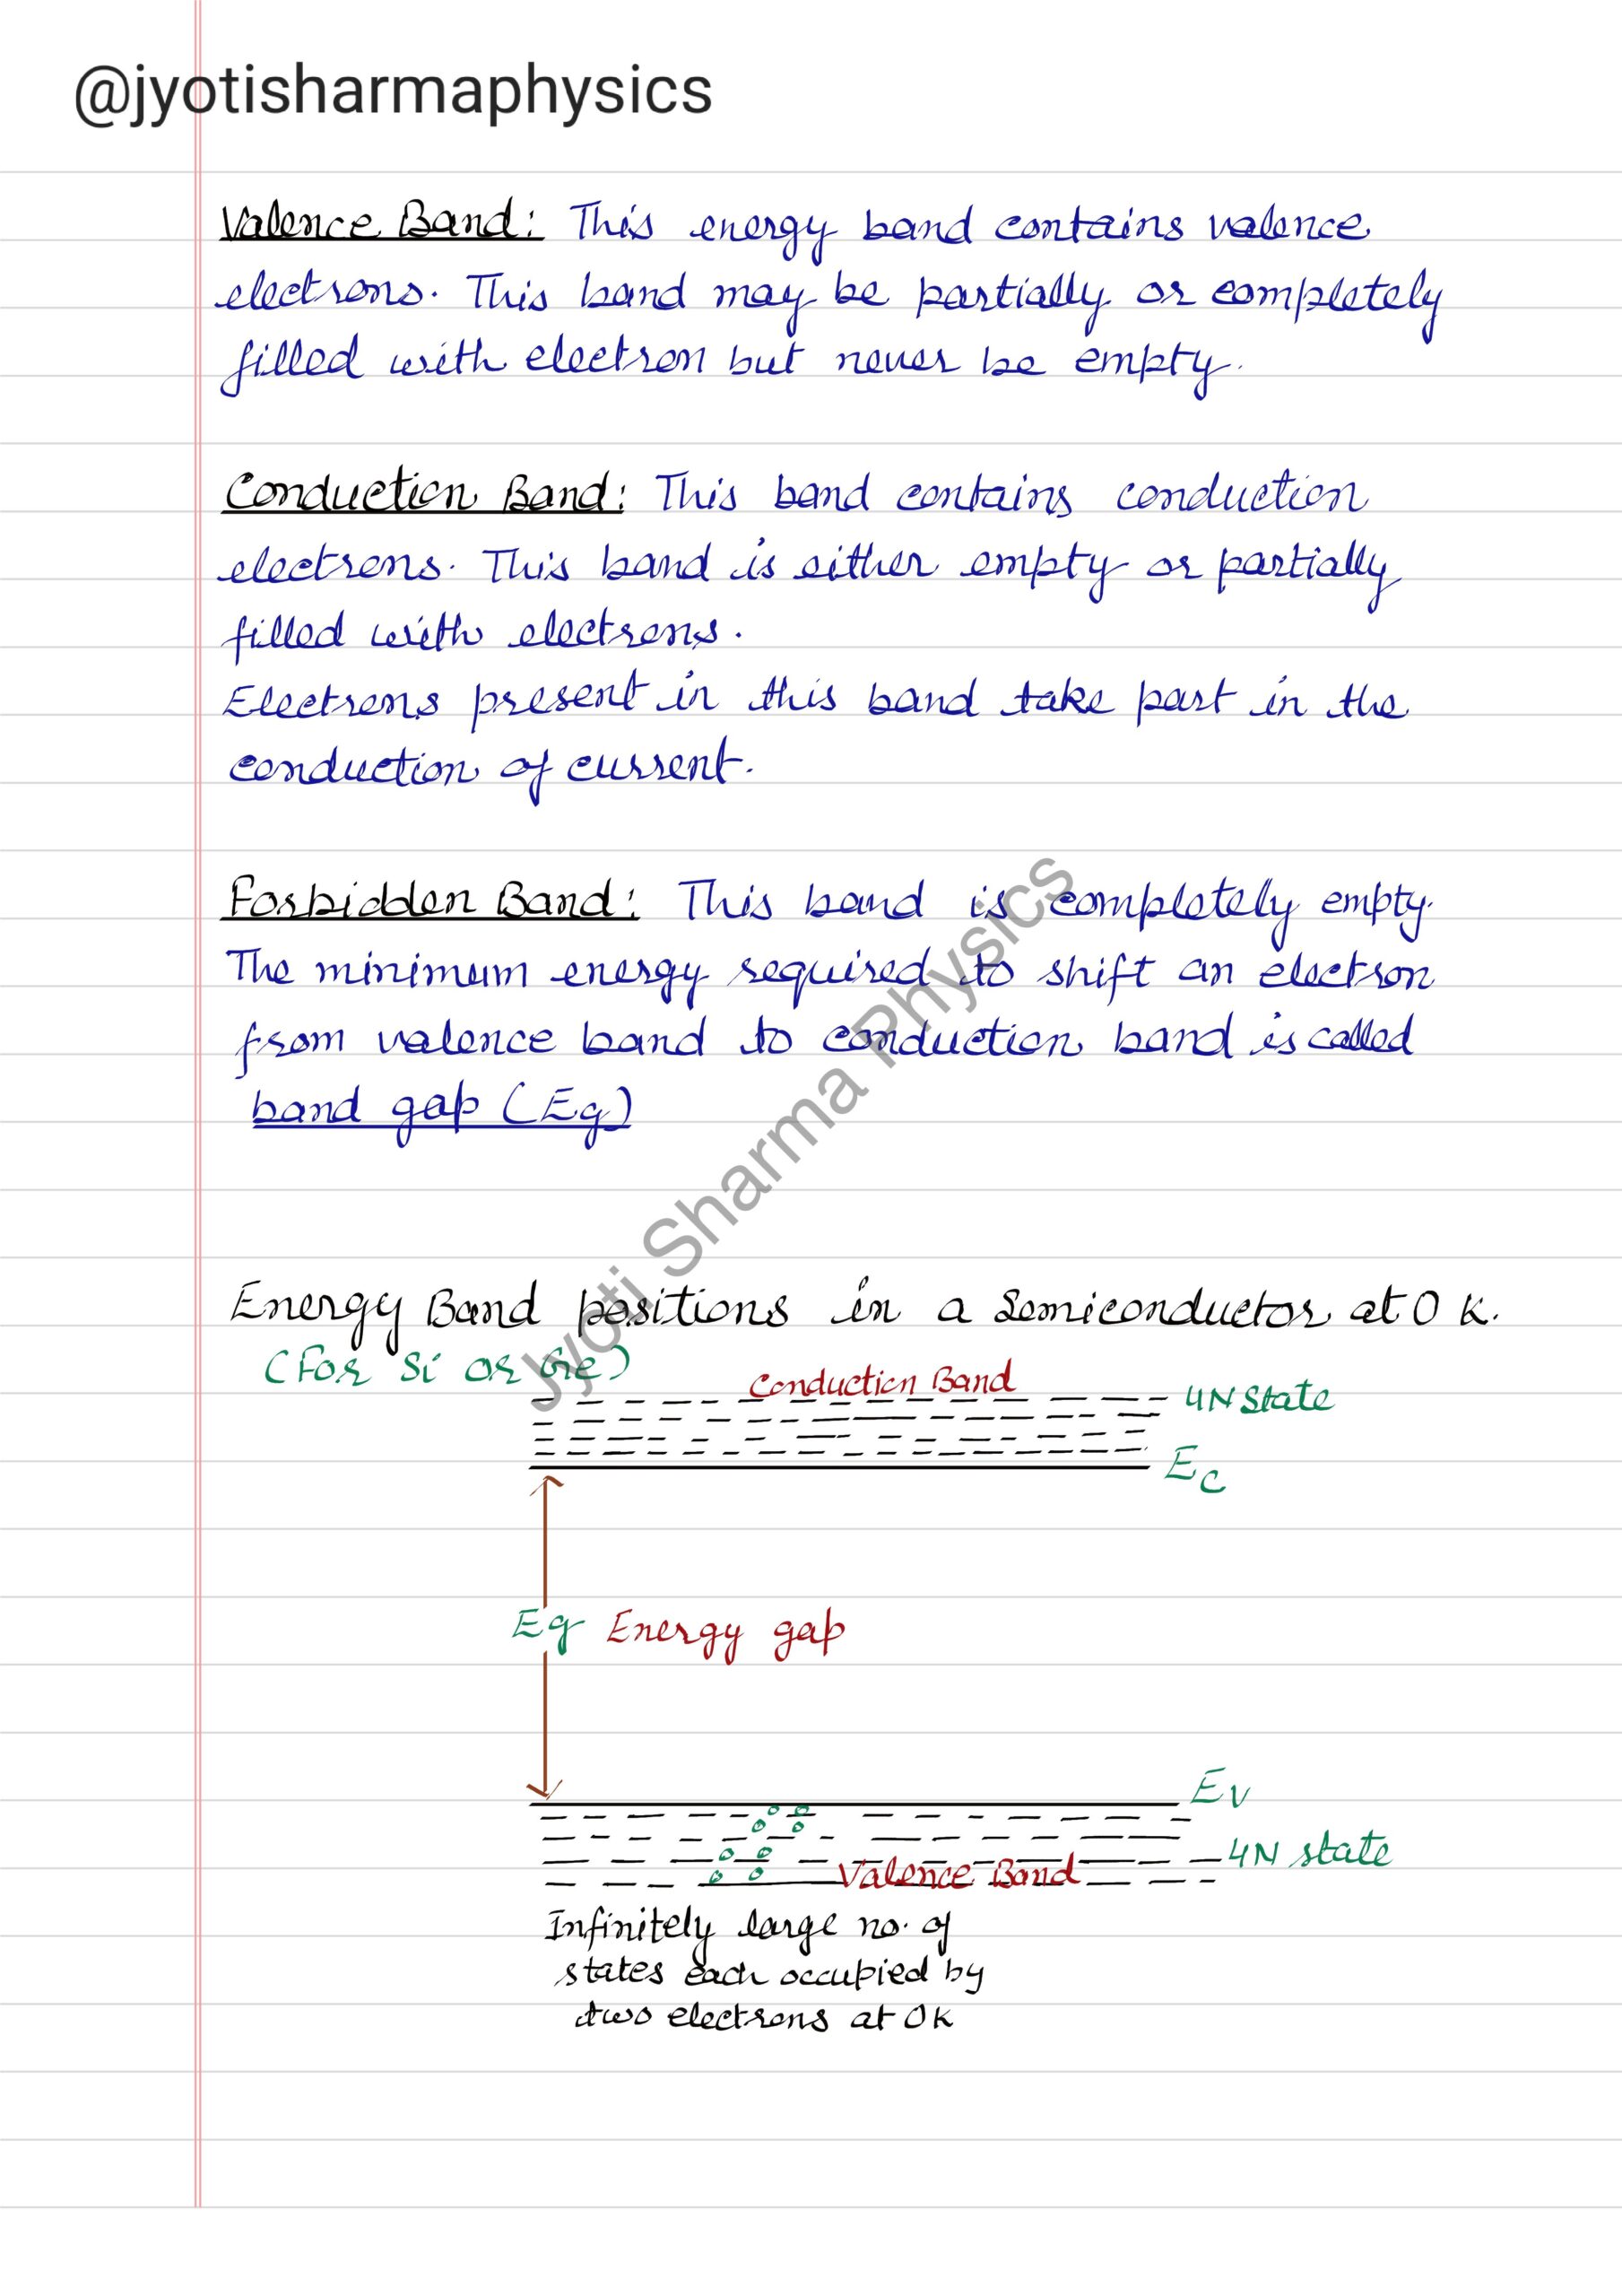 @jyotisharmaphysics
Valence Band: This energy band contains valence
electrons. This band may be partially or completely
filled with electron but never be empty.
Conduction Band: This band contains conduction
electrons. This band is either empty or partially
filled with electrons.
Electrons present in this band take part in the
conduction of current.
Forbidden Band: This band is completely empty.
The minimum energy required to shift an electron
from valence band to conduction band is called
band gap (Eg)
Jyoti Sharma Physics
Energy Band positions in a Semiconductor at 0 K.
(For Si or Ge)
Conduction Band
4N State
EC
Eg Energy gap
EV
4N state
Valence Band
Infinitely large no. of
states each occupied by
two electrons at 0K